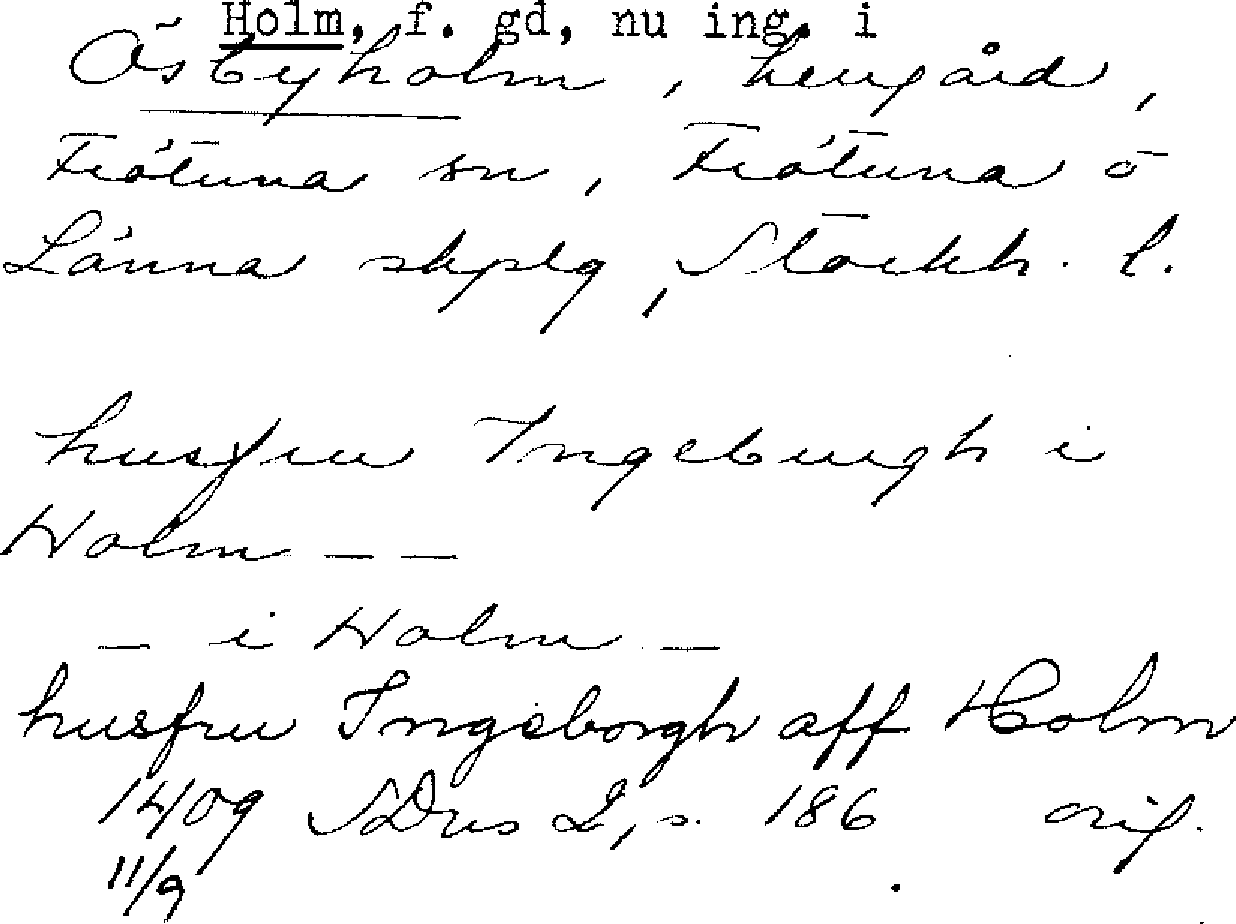 Holm, f. gd, nu ing. i
Österbyholm, herrgård,
Frötuna sn, Frötuna o
Länna skplg, Stockh. l.
husfru Ingeburgh i
Holm — —
— i Holm —
husfru Ingeborgh aff Holm
1409 SDns 2, s. 186 orig.
11/9